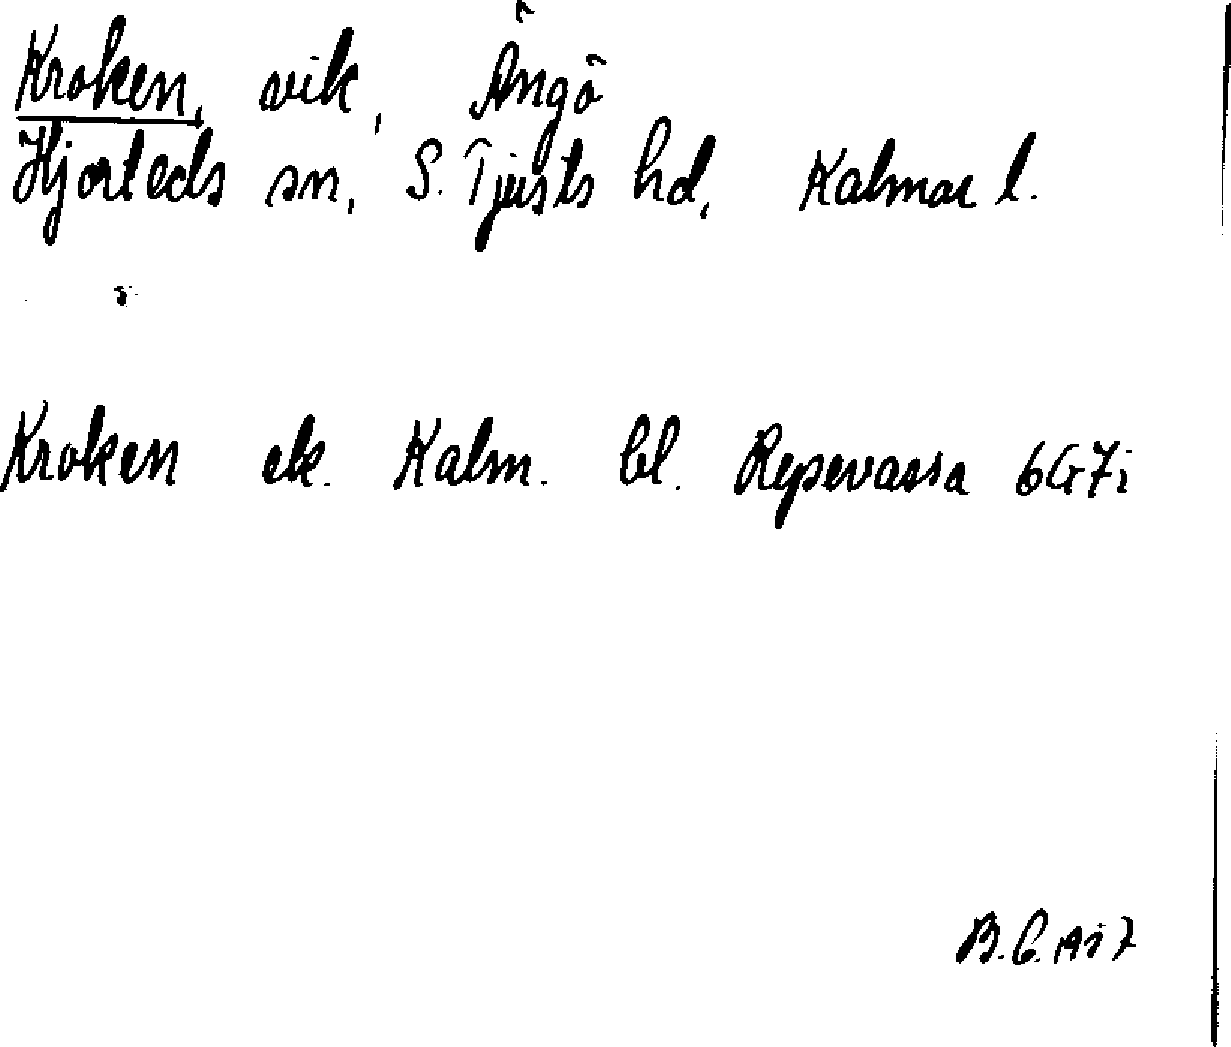 Kroken, vik, Ängö
Hjorteds sn, S. Tjusts hd, Kalmar l.
Kroken ek. Kalm. bl. Repsvassa 6G7i